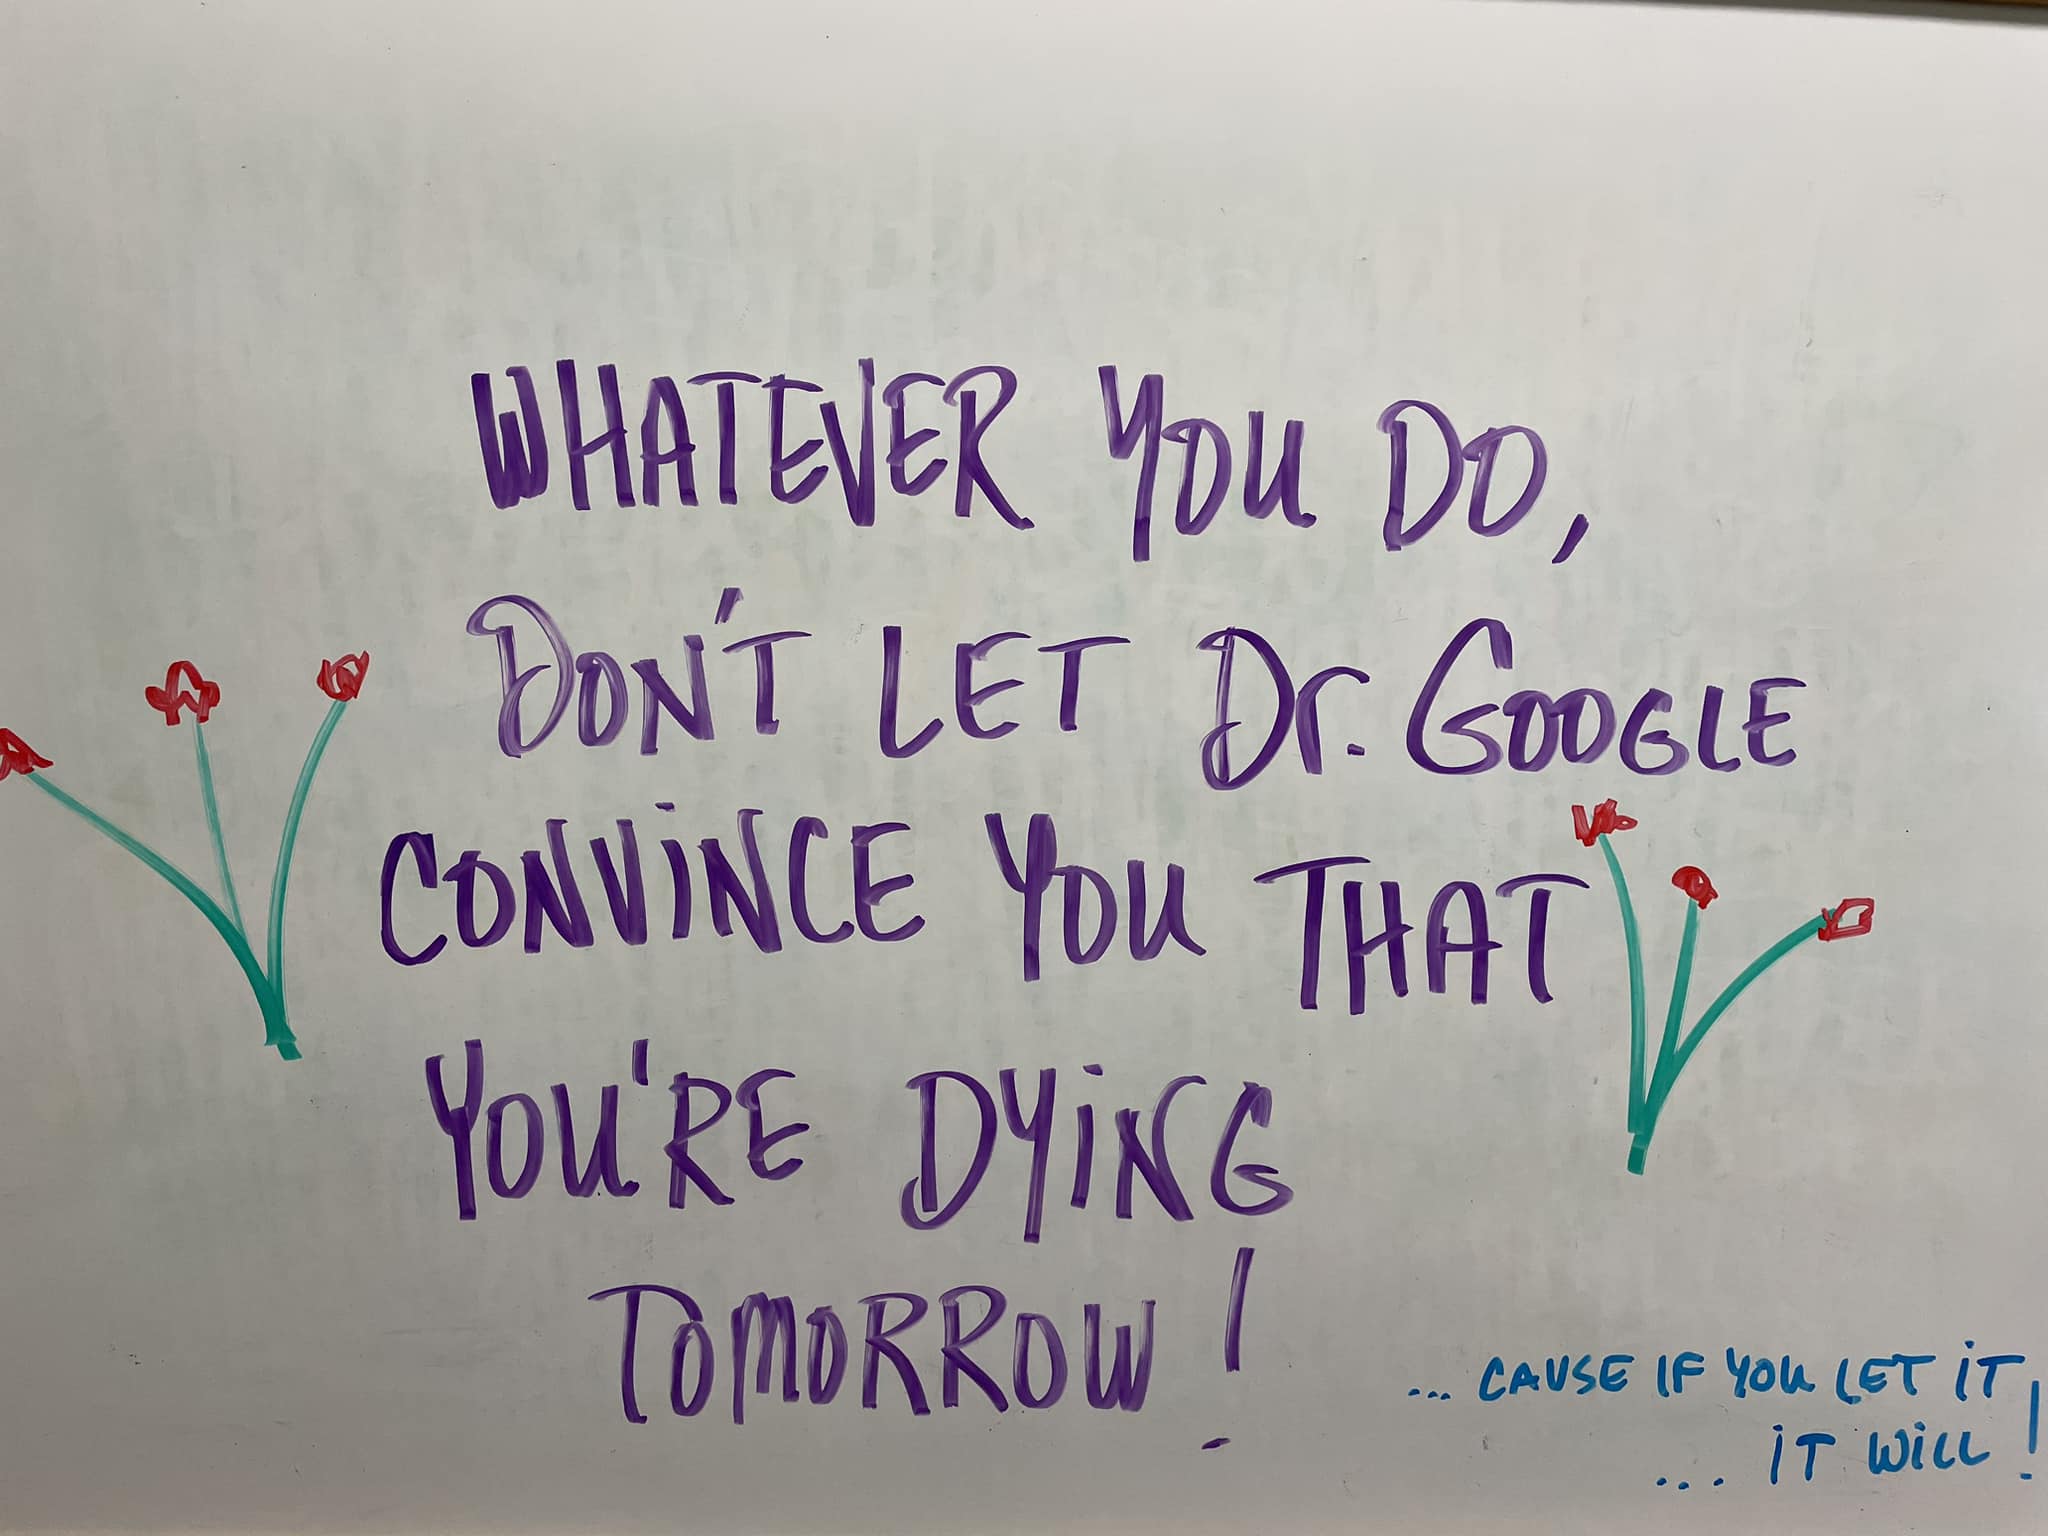 WHATEVER YOU DO,
DON'T LET Dr. GOOGLE
CONViNCE YOU THAT
YOU'RE DYiNG
TOMORROW!
... CAUSE IF YOU LET iT
.... iT WiLL!